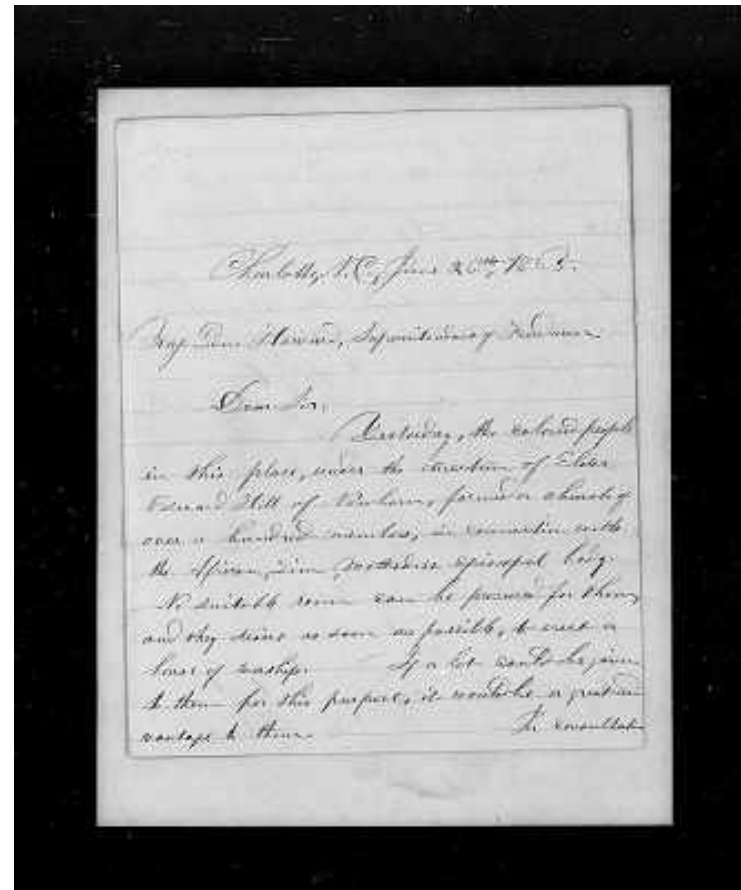 Charlotte, N.C., June 26th, 1865.
Maj Genl Howard, Superintendent of Freedmen
Dear Sir,
Yesterday, the colored people
in this place, under the direction of Elder
Edward Hill of Newbern, formed a church of
over a hundred members, in connection with
the African Zion Methodist Episcopal body.
No suitable room can be procured for them,
and they desire as soon as possible, to erect a
house of worship. If a lot could be given
to them for this purpose, it would be a great ad-
vantage to them. In